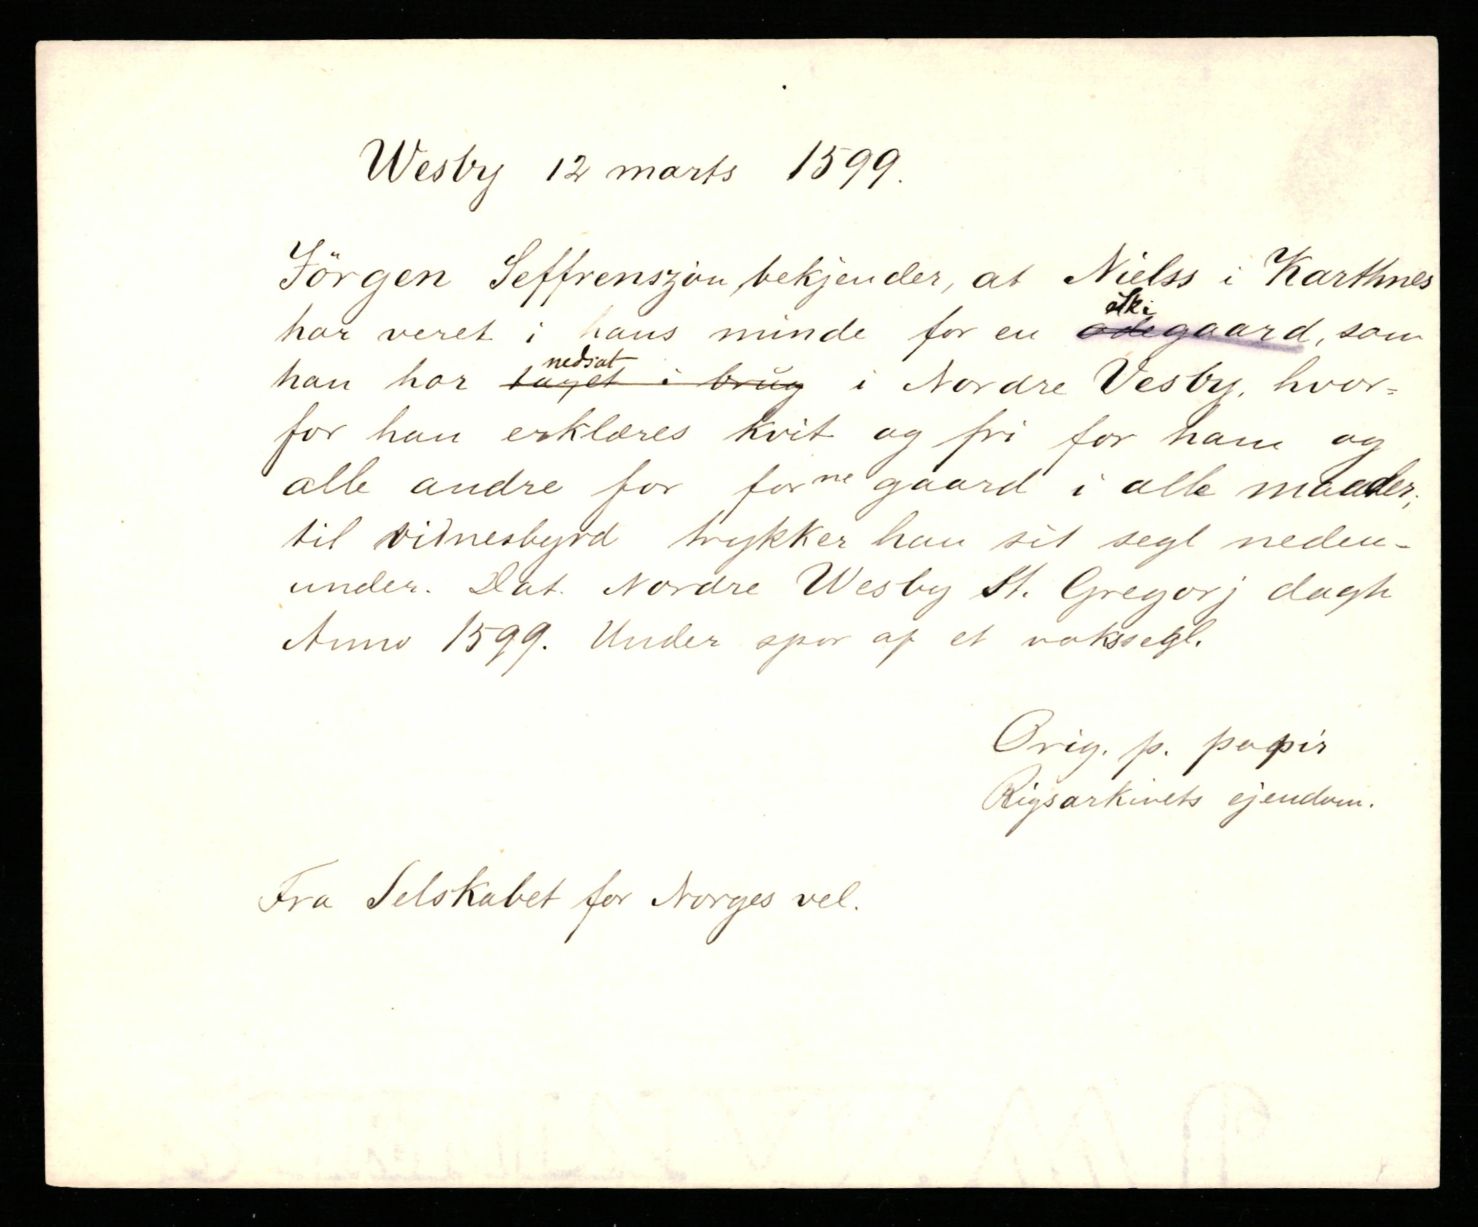 Wesby 12 marts 1599.
Jörgen Seffrenszøn bekjender, at Nielss i Karthnes
har veret i hans minde for en ødegaard, som
han har nedsat taget i brug i Nordre Vesby, hvor=
for han erklæres kvit og fri for ham og
alle andre for forne gaard i alle maader;
til vidnesbyrd trykker han sit segl neden-
under. Dat. Nordre Wesby St. Gregorj dagh
Anno 1599. Under spor af et vokssegl.
Orig. p. papir
Rigsarkivets ejendom.
Fra Selskabet for Norges vel.